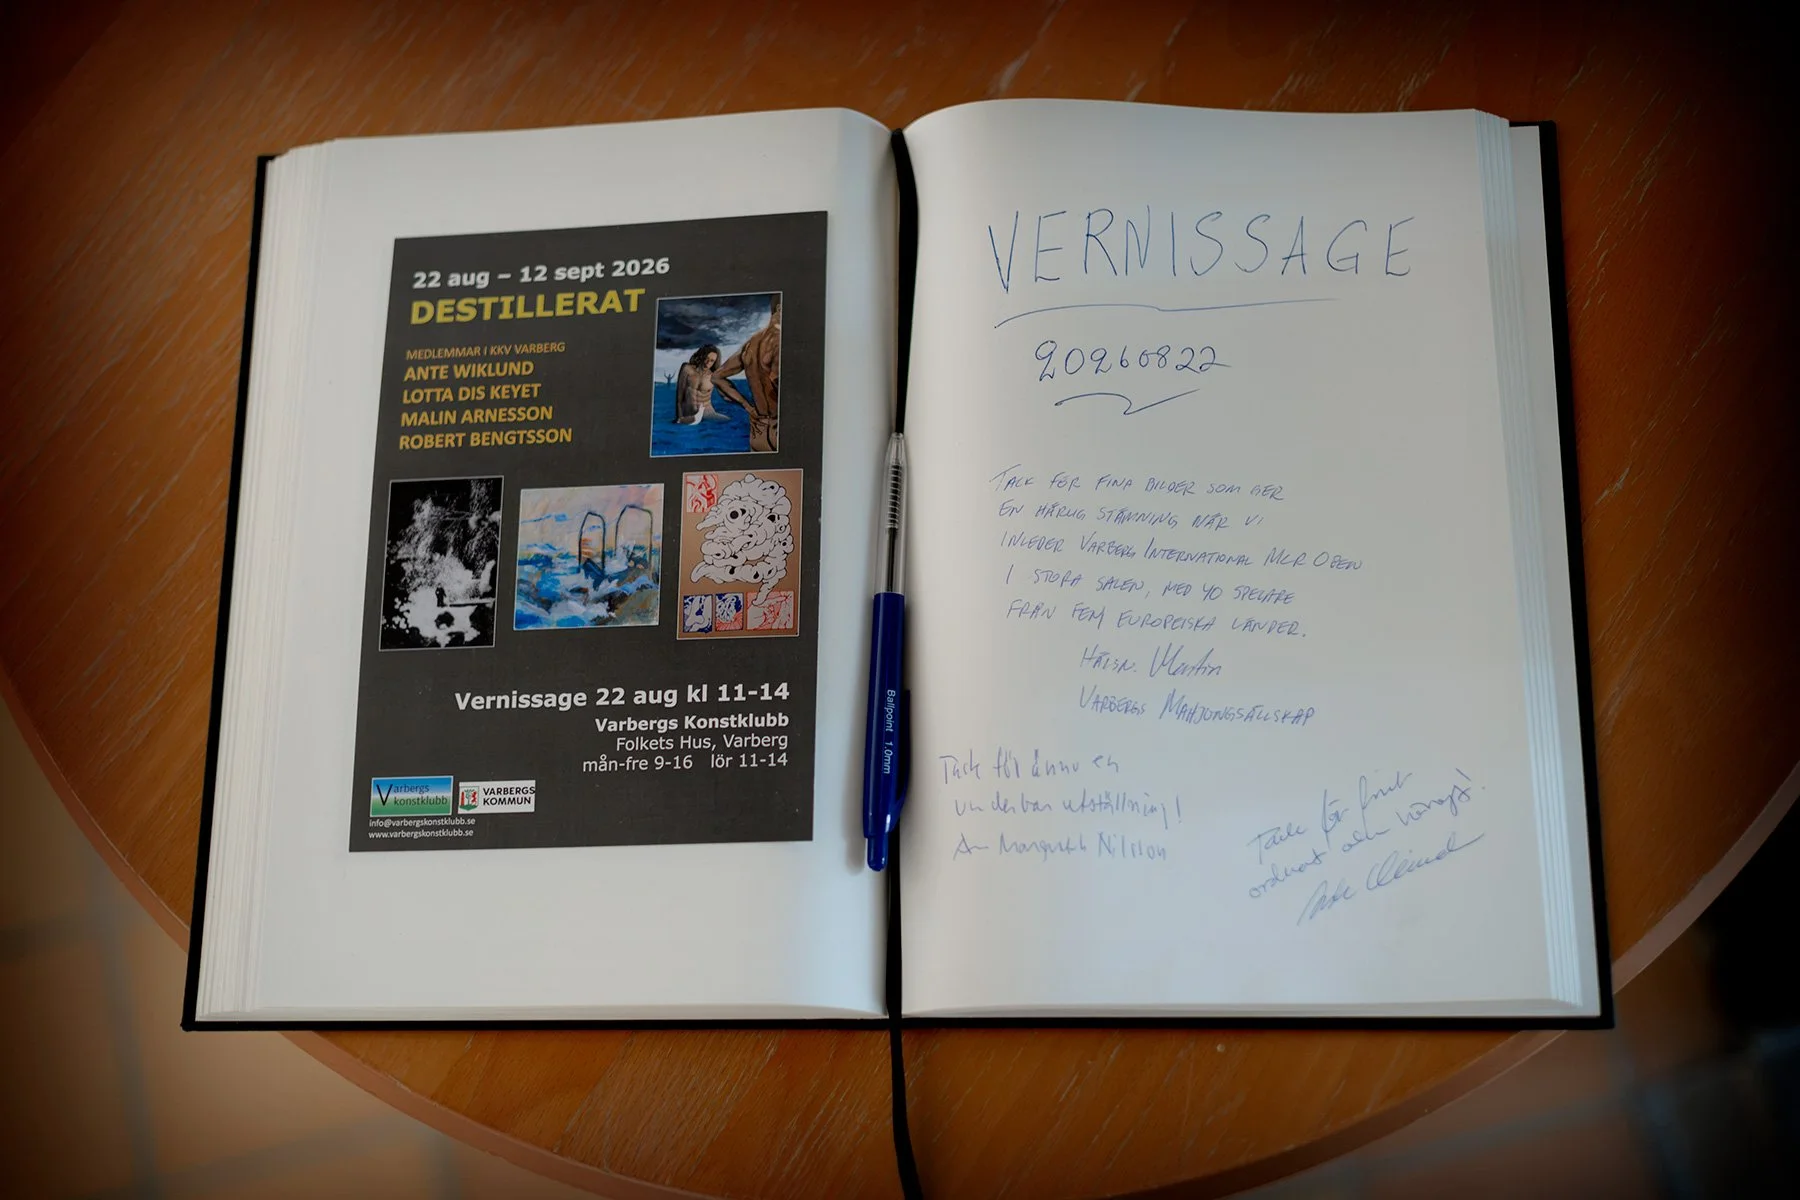 22 aug – 12 sept 2026
DESTILLERAT
MEDLEMMAR I KKV VARBERG
ANTE WIKLUND
LOTTA DIS KEYET
MALIN ARNESSON
ROBERT BENGTSSON
Vernissage 22 aug kl 11-14
Varbergs Konstklubb
Folkets Hus, Varberg
mån-fre 9-16 lör 11-14
Varbergs
konstklubb
VARBERGS
KOMMUN
info@varbergskonstklubb.se
www.varbergskonstklubb.se
Ballpoint 1.0mm
VERNISSAGE
20260822
TACK FÖR FINA BILDER SOM GER
EN HÄRLIG STÄMNING NÄR VI
INLEDER VARBERG INTERNATIONAL MCR OPEN
I STORA SALEN, MED 40 SPELARE
FRÅN FEM EUROPEISKA LÄNDER.
HÄLSN. Martin
VARBERGS MAHJONGSÄLLSKAP
Tack för ännu en
underbar utställning!
Margareth Nilsson
Tack för fint
ordnat och